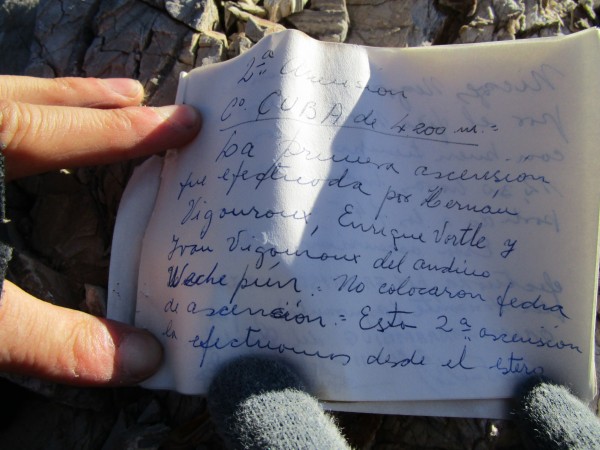 2ª Ascension
Cº. CUBA de 4200 m.=
La primera ascensión
fue efectuada por Hernán
Vigouroux, Enrique Vortle y
Ivan Vigouroux del andino
Weche pún.= No colocaron fecha
de ascención.= Esta 2ª ascension
la efectuamos desde el estero